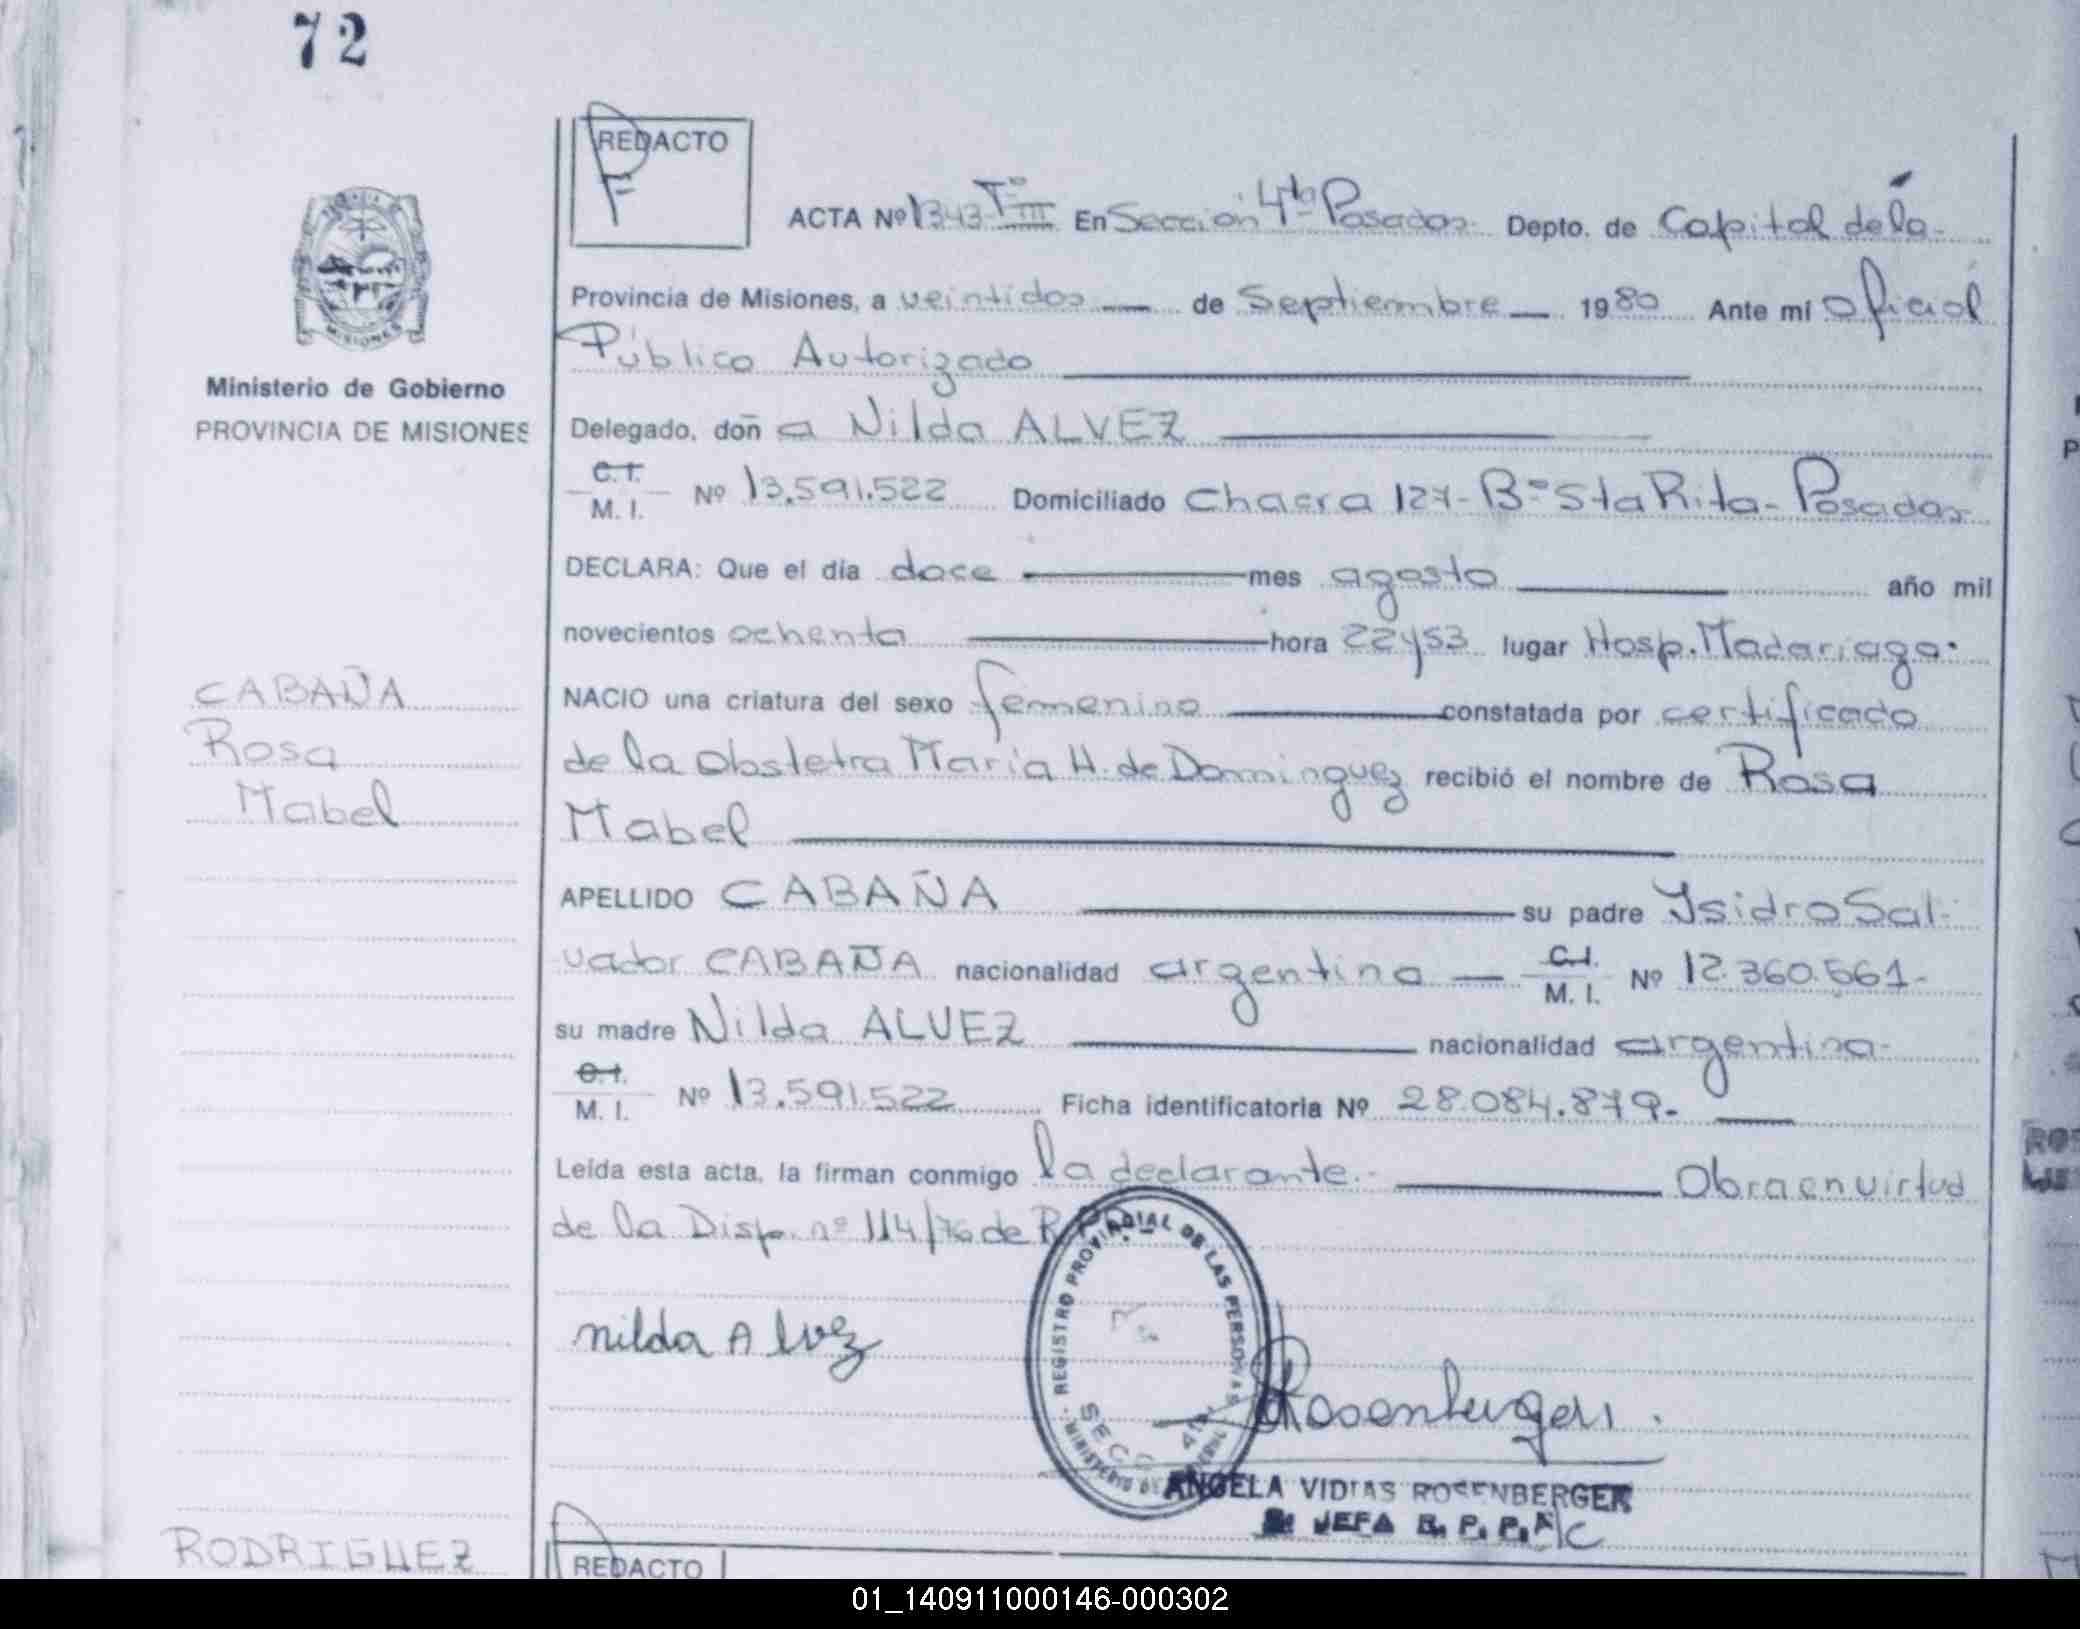 72
REDACTO
F
ACTA Nº 1343 Tº III En Sección 4ta Posadas Depto. de Capital de la
Provincia de Misiones, a veintidos de Septiembre 1980 Ante mi Oficial
Público Autorizado
Ministerio de Gobierno
PROVINCIA DE MISIONES
Delegado, don̄ a Nilda ALVEZ
C.I.
M. I. Nº 13.591.522 Domiciliado Chacra 127-Bº Sta Rita-Posadas
DECLARA: Que el día doce mes agosto año mil
novecientos ochenta hora 22y53 lugar Hosp. Madariaga.
NACIO una criatura del sexo femenino constatada por certificado
de la Obstetra María H. de Dominguez recibió el nombre de Rosa
Mabel
CABAÑA
Rosa
Mabel
APELLIDO CABAÑA su padre Ysidro Sal-
vador CABAÑA nacionalidad argentina C.I.
M. I. Nº 12.360.561-
su madre Nilda ALVEZ nacionalidad argentina-
C.I.
M. I. Nº 13.591.522 Ficha identificatoria Nº 28.084.879.-
Leída esta acta, la firman conmigo la declarante.- Obra en virtud
de la Disp. nº 114/76 de
REGISTRO PROVINCIAL DE LAS PERSONAS
MINISTERIO DE
SECC 4ta
nilda Alvez
Rosenberger
ANGELA VIDIAS ROSENBERGER
JEFA R. P. P. A/C
RODRIGUEZ
REDACTO
01_140911000146-000302